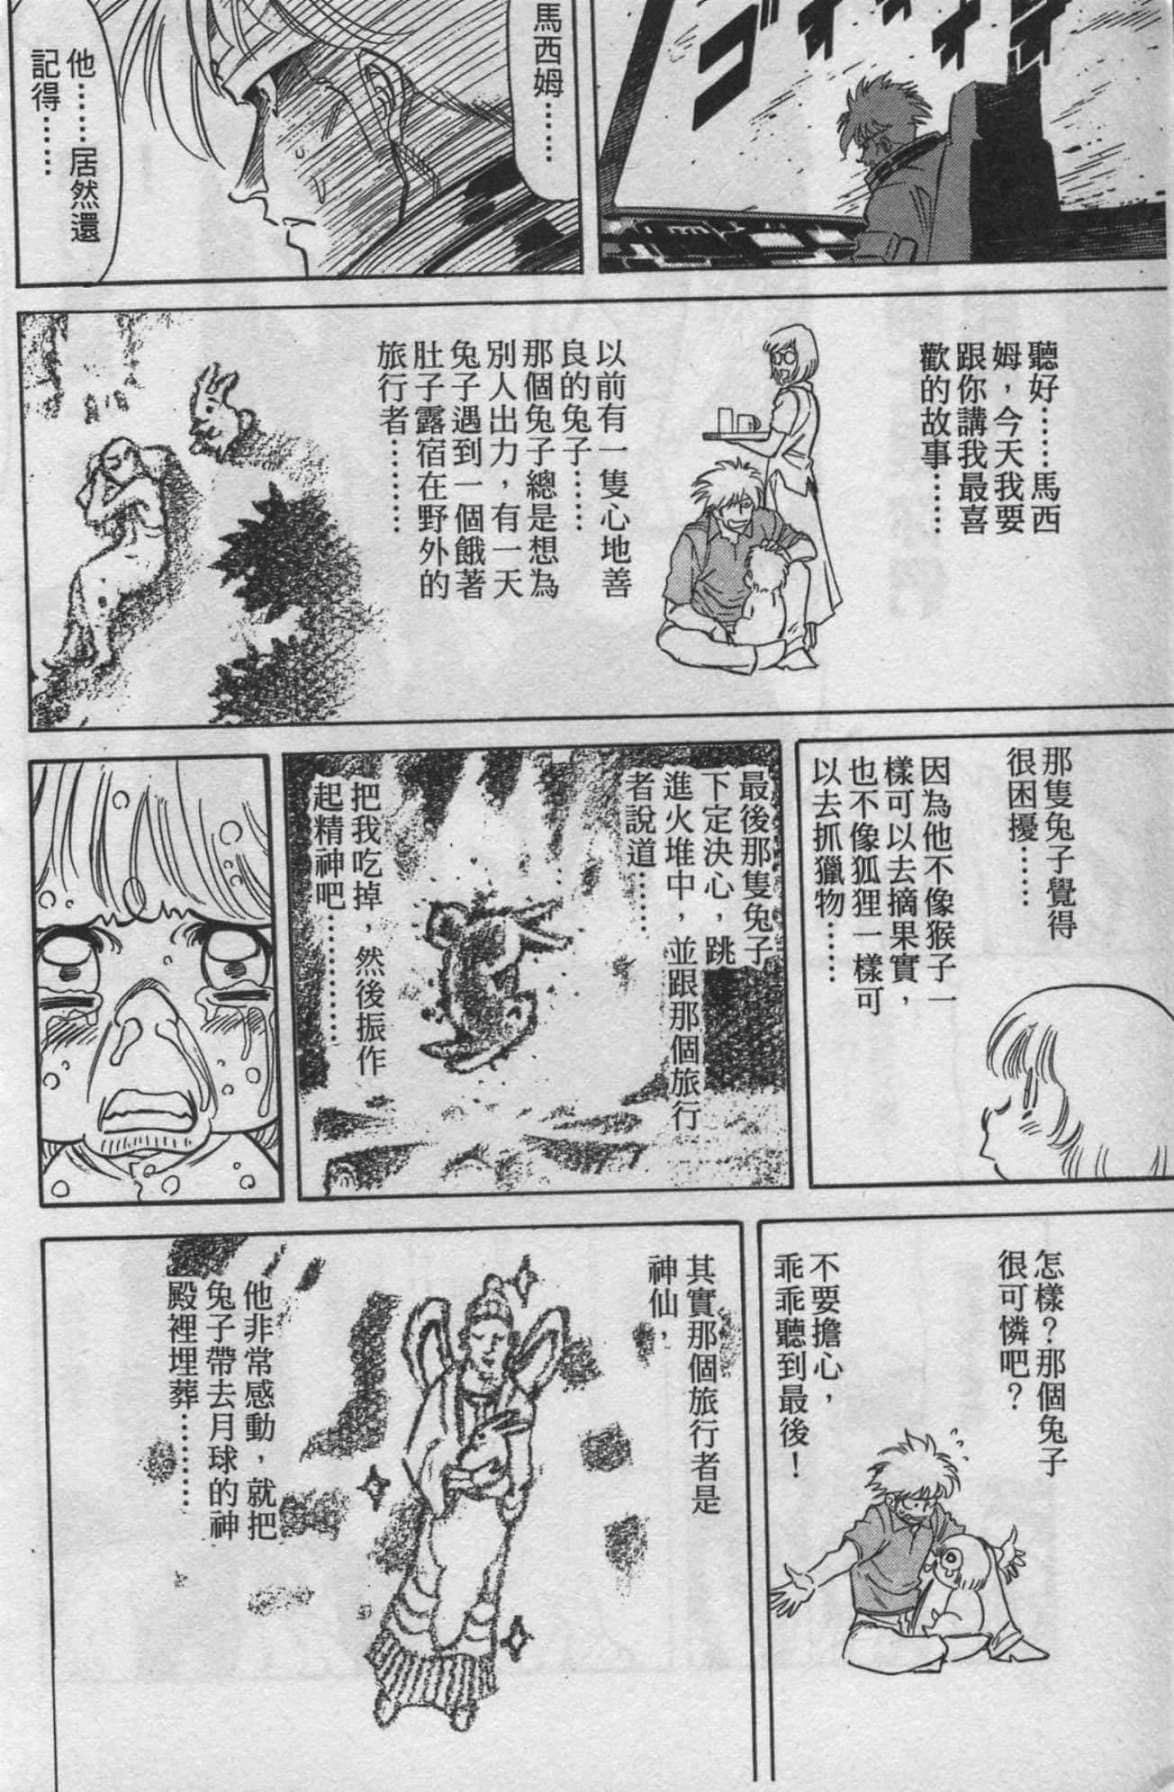 ゴゴゴゴ
馬西姆……
他……居然還
記得……
聽好……馬西
姆，今天我要
跟你講我最喜
歡的故事……
以前有一隻心地善
良的兔子……
那個兔子總是想為
別人出力，有一天
兔子遇到一個餓著
肚子露宿在野外的
旅行者………
那隻兔子覺得
很困擾……
因為他不像猴子一
樣可以去摘果實，
也不像狐狸一樣可
以去抓獵物……
最後那隻兔子
下定決心，跳
進火堆中，並跟那個旅行
者說道………
把我吃掉，然後振作
起精神吧…………
怎樣？那個兔子
很可憐吧？
不要擔心，
乖乖聽到最後！
其實那個旅行者是
神仙，
他非常感動，就把
兔子帶去月球的神
殿裡埋葬………